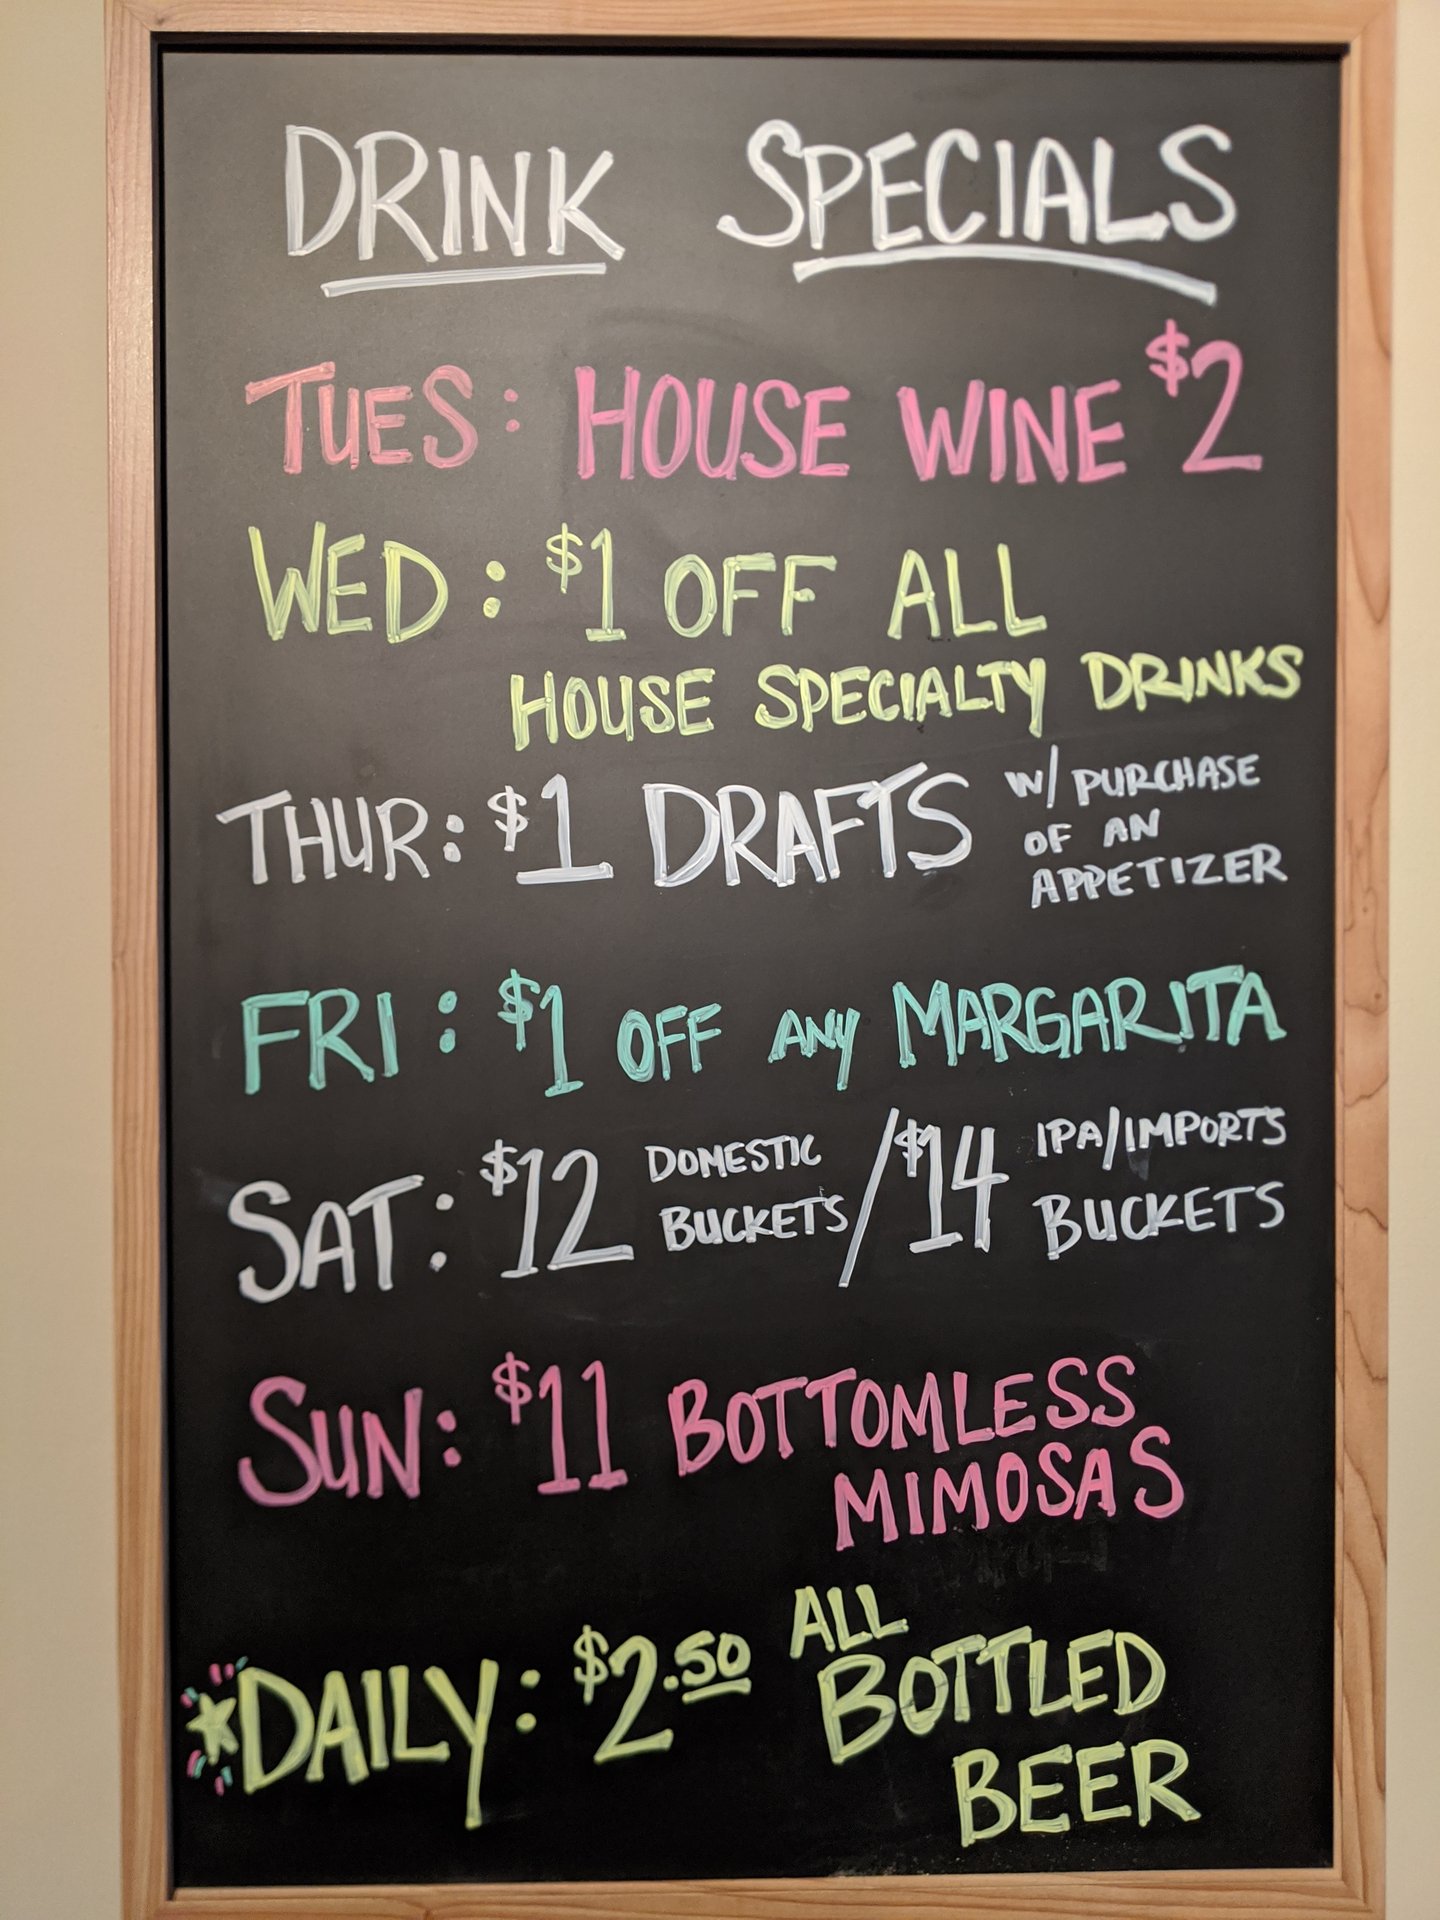 DRINK SPECIALS
TUES: HOUSE WINE $2
WED: $1 OFF ALL
HOUSE SPECIALTY DRINKS
THUR: $1 DRAFTS W/ PURCHASE
OF AN
APPETIZER
FRI: $1 OFF ANY MARGARITA
SAT: $12 DOMESTIC BUCKETS / $14 IPA/IMPORTS BUCKETS
SUN: $11 BOTTOMLESS
MIMOSAS
DAILY: $2.50 ALL
BOTTLED
BEER